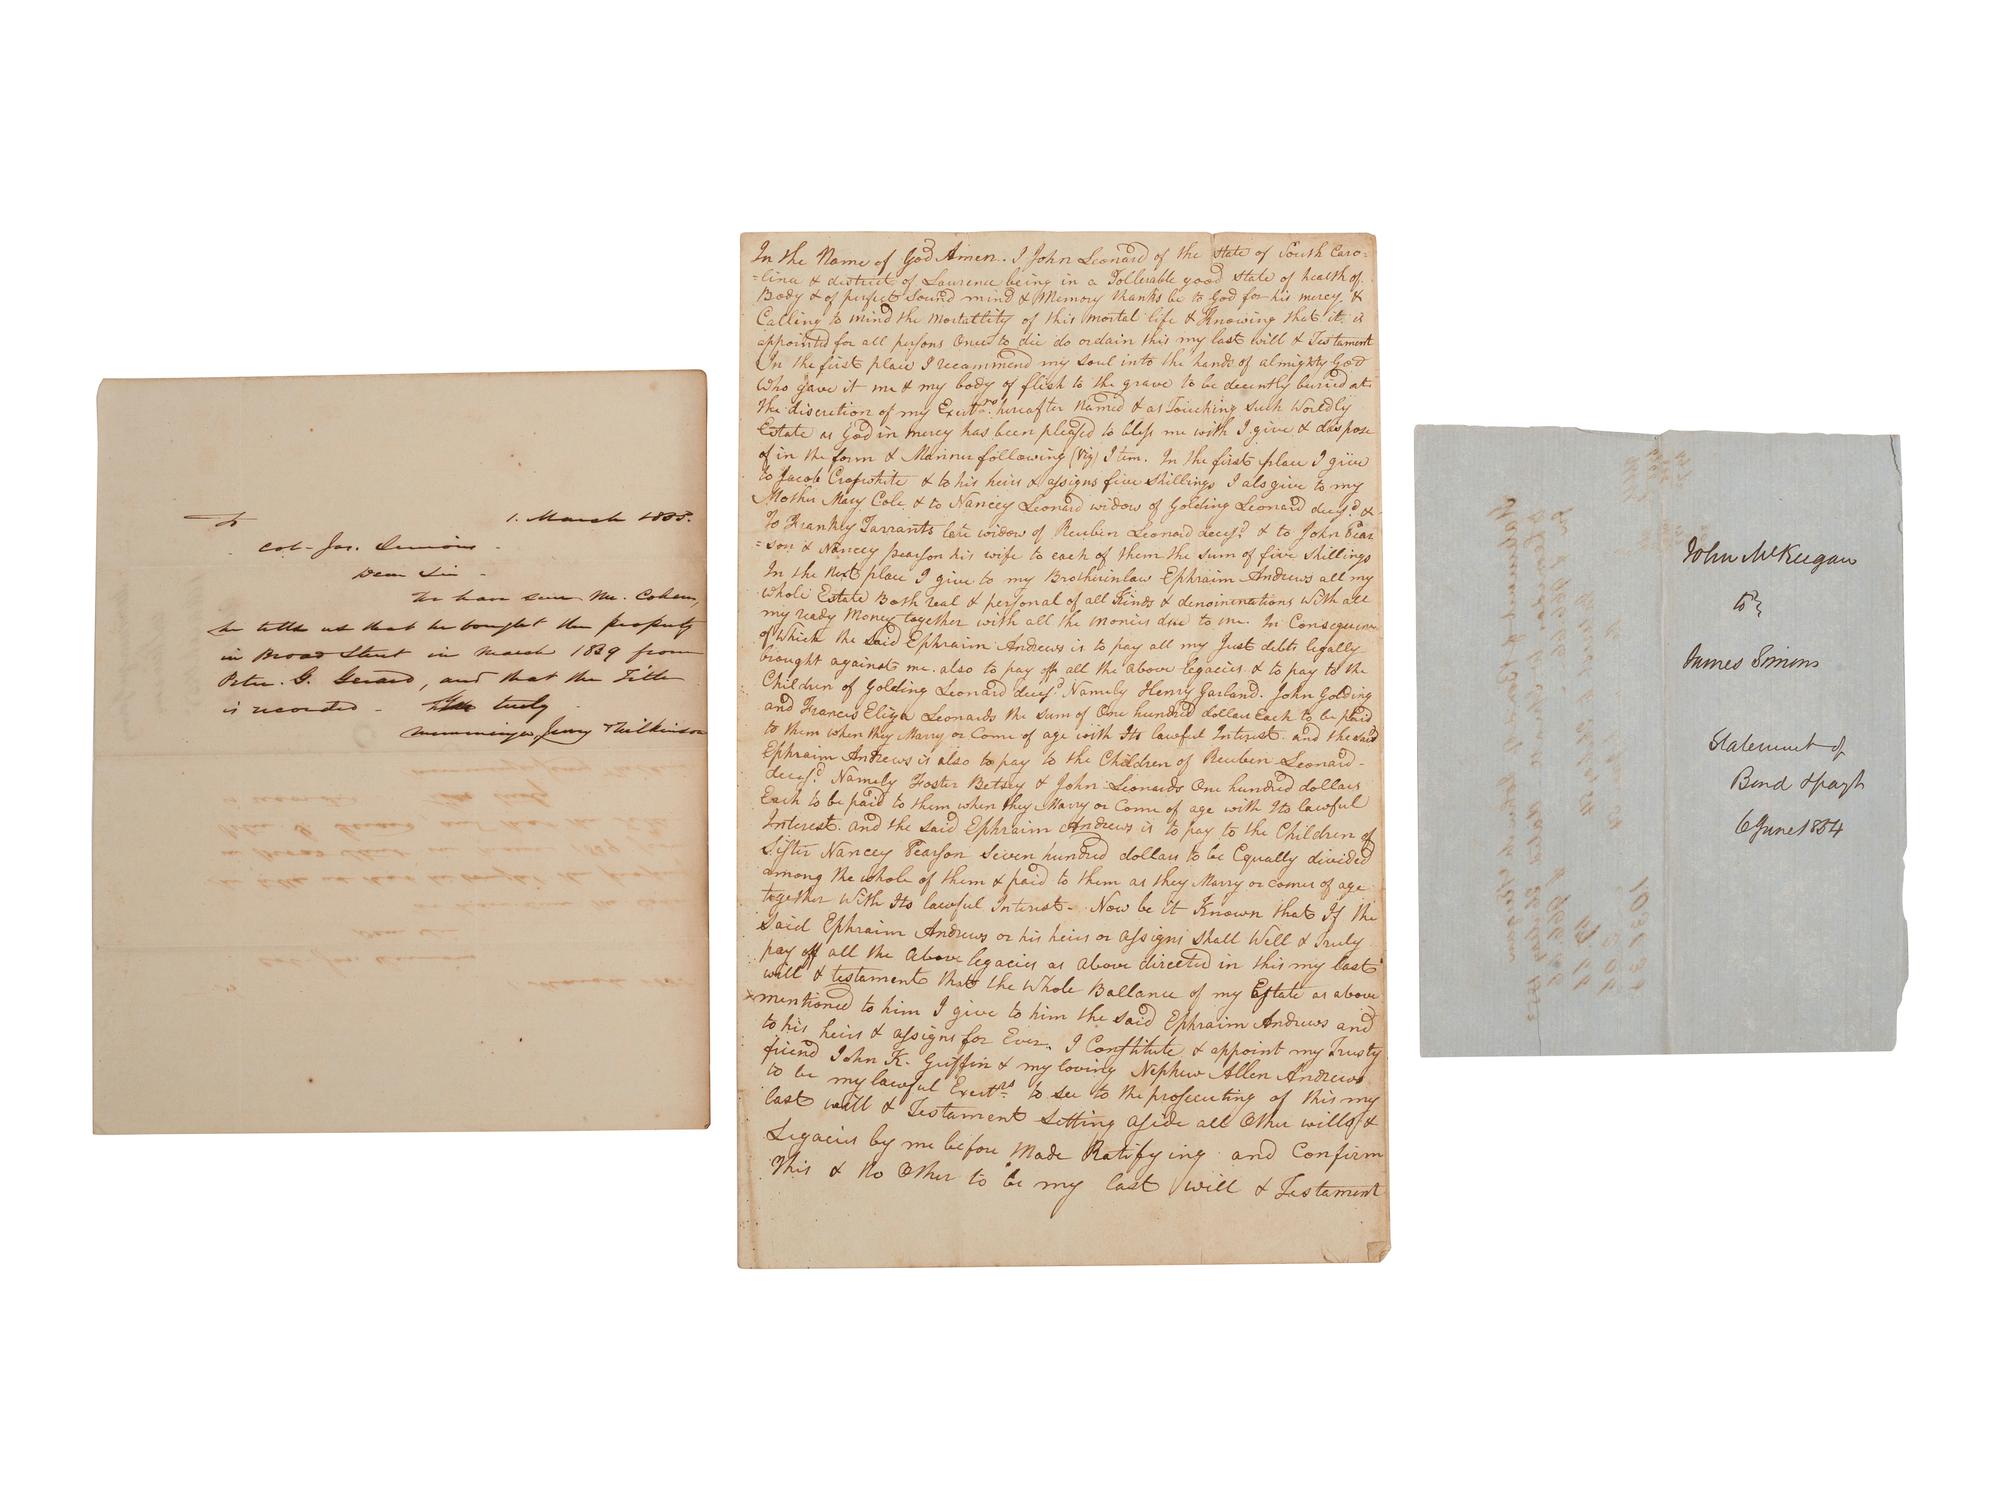 To
1. March 1855.
Col. Jas. Simons.
Dear Sir.
We have seen Mr. Cohen,
he tells us that he bought the property
in Broad Street in March 1839 from
Peter. G. Gerard, and that the Title
is recorded. truly
Memminger, Jervey & Wilkinson
In the Name of God Amen. I John Leonard of the State of South Caro-
=lina & district of Laurence being in a Tollerable good State of health of
Body & of perfect Sound mind & Memory thanks be to God for his mercy &
Calling to mind the Mortallity of this mortal life & Knowing that it is
appointed for all persons Once to die do ordain this my last will & Testament
In the first place I recommend my Soul into the hands of almighty God
Who gave it me & my body of flesh to the grave to be decently buried at
the discretion of my Exectrs. hereafter Named & as Touching such Worldly
Estate as God in mercy has been pleased to bless me with I give & dispose
of in the form & Manner following (Viz) Item. In the first place I give
to Jacob Croswhite & to his heirs & assigns five Shillings I also give to my
Mother Mary Cole & to Nancey Leonard widow of Golding Leonard decsd. &
To Frankey Tarrants late widow of Reuben Leonard decsd & to John Pear
=son & Nancey pearson his wife to each of them the sum of five Shillings
In the Next place I give to my Brotherinlaw Ephraim Andrews all my
whole Estate Both real & personal of all Kinds & denominations With all
my ready Money together with all the monies due to me. In Consequence
of Which the Said Ephraim Andrews is to pay all my Just debts legally
brought against me. also to pay off all the above legacies & to pay to the
Children of Golding Leonard decsd Namely Henry Garland. John Golding
and Francis Eliza Leonards the sum of One hundred dollars Each to be paid
to them when they Marry or Come of age with Its lawful Interest. and the said
Ephraim Andrews is also to pay to the Children of Reuben Leonard
decsd. Namely Foster Betsey & John Leonards One hundred dollars
Each to be paid to them when they Marry or Come of age with Its lawful
Interest. and the said Ephraim Andrews is to pay to the Children of
Sister Nancey Pearson Seven hundred dollars to be Equally divided
among the whole of them & paid to them as they Marry or comes of age
together With Its lawful Interest. Now be it Known that If the
Said Ephraim Andrews or his heirs or assigns Shall Well & Truly
pay off all the Above legacies as above directed in this my last
will & testament that the Whole Ballance of my Estate as above
mentioned to him I give to him the Said Ephraim Andrews and
to his heirs & assigns for Ever. I Constitute & appoint my Trusty
friend John K. Griffin & my loving Nephew Allen Andrews
to be my lawful Exectrs to see to the prosecuting of this my
last will & Testament Setting aside all Other wills &
Legacies by me before Made Ratifying and Confirm
This & No Other to be my last will & Testament
John McKeegan
to
James Simons
Statement of
Bond &
6 June 1854